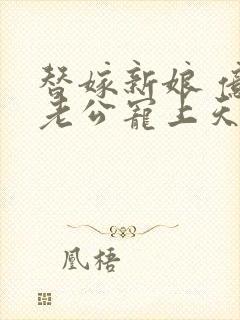 替嫁新娘 億
老公寵上天
凰梧